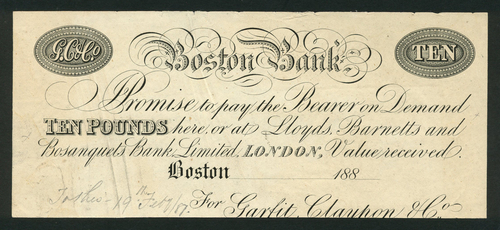 G.C.&Co Boston Bank TEN
Promise to pay the Bearer on Demand
TEN POUNDS here, or at Lloyds, Barnetts and
Bosanquets Bank, Limited, LONDON, Value received.
Boston 188
19th Feby/87. For Garfit, Claypon & Co.